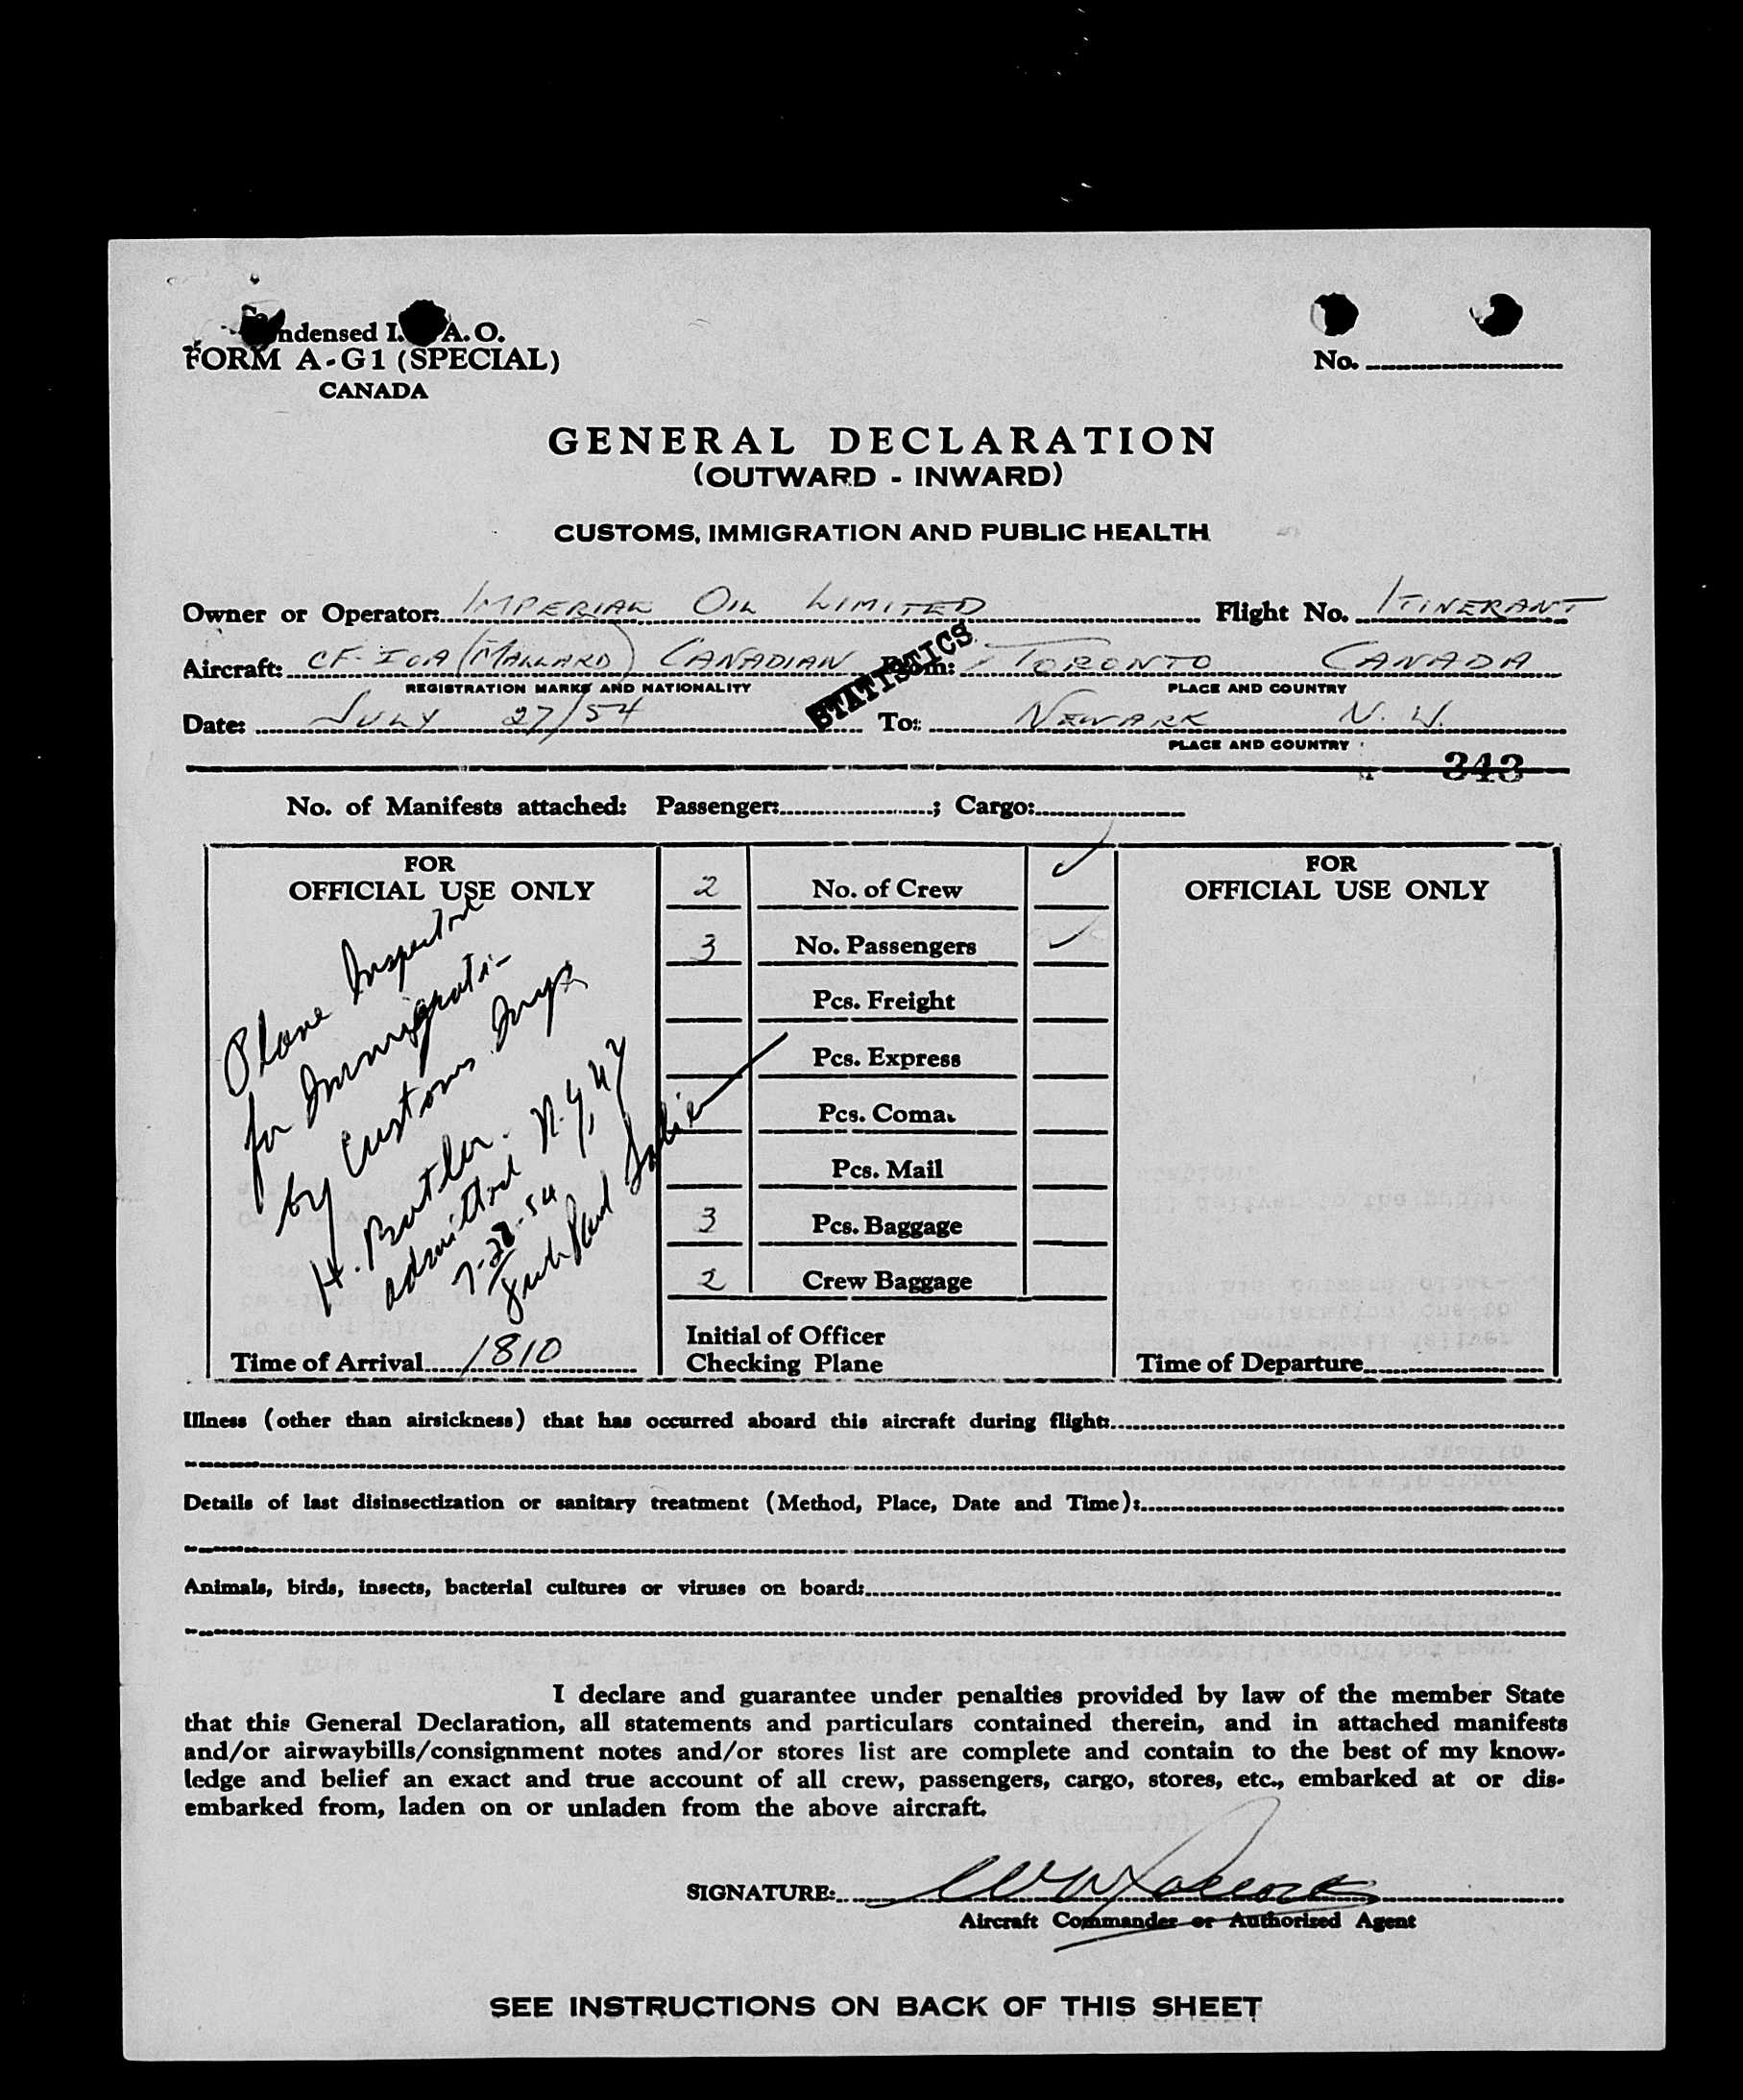 Condensed I. A. O.
FORM A-G1 (SPECIAL)
CANADA
No.
GENERAL DECLARATION
(OUTWARD - INWARD)
CUSTOMS, IMMIGRATION AND PUBLIC HEALTH
Owner or Operator: IMPERIAL OIL LIMITED Flight No. ITINERANT
Aircraft: CF-IOA (MALLARD) CANADIAN From: TORONTO CANADA
REGISTRATION MARKS AND NATIONALITY PLACE AND COUNTRY
STATISTICS
Date: JULY 27/54 To: NEWARK N.
PLACE AND COUNTRY
343
No. of Manifests attached: Passenger: ; Cargo:
FOR
OFFICIAL USE ONLY
Plane Inspected
for Immigrati-
by Customs Insp
H. Butler. N.Y, NY
admitted
7-28-54
Time of Arrival 1810
2 No. of Crew ✓
3 No. Passengers ✓
Pcs. Freight
Pcs. Express
Pcs. Comat
Pcs. Mail
3 Pcs. Baggage
2 Crew Baggage
Initial of Officer
Checking Plane
FOR
OFFICIAL USE ONLY
Time of Departure
Illness (other than airsickness) that has occurred aboard this aircraft during flight:
Details of last disinsectization or sanitary treatment (Method, Place, Date and Time):
Animals, birds, insects, bacterial cultures or viruses on board:
I declare and guarantee under penalties provided by law of the member State
that this General Declaration, all statements and particulars contained therein, and in attached manifests
and/or airwaybills/consignment notes and/or stores list are complete and contain to the best of my know-
ledge and belief an exact and true account of all crew, passengers, cargo, stores, etc., embarked at or dis-
embarked from, laden on or unladen from the above aircraft.
SIGNATURE:
Aircraft Commander or Authorized Agent
SEE INSTRUCTIONS ON BACK OF THIS SHEET